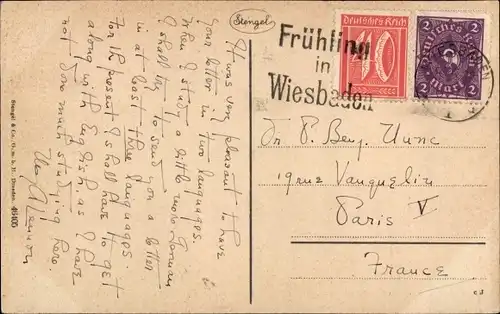 Stengel
It was very pleasant to have
your letter in two languages.
When I study a little more German
I shall try to send you a letter
in at least three languages.
For the present I shall have to get
along with English, as I have
not done much studying here.
Stengel & Co., G. m. b. H., Dresden. 46405
Frühling
in
Wiesbaden
Deutsches Reich
40
2 2
Deutsches
Reich
2 Mark 2
Dr P. Bey.
19 rue Vauquelin
Paris V
France